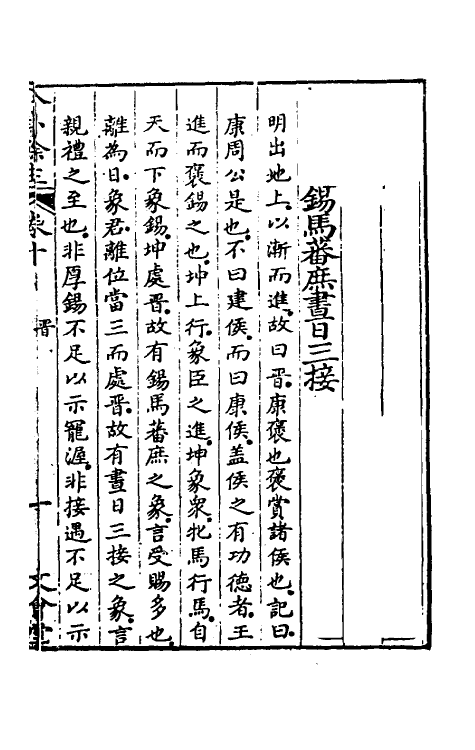 錫馬蕃庶晝日三接
明出地上。以漸而進。故曰晋。康褒也褒賞諸侯也。記曰。
康周公是也。不曰建侯。而曰康侯。盖侯之有功德者。王
進而褒錫之也。坤上行。象臣之進。坤象衆。牝馬行馬。自
天而下。象錫。坤處晋。故有錫馬蕃庶之象。言受賜多也。
離為日。象君。離位當三而處晋。故有晝日三接之象。言
親禮之至也。非厚錫不足以示寵渥。非接遇不足以示
卷十 晋 一 文會堂